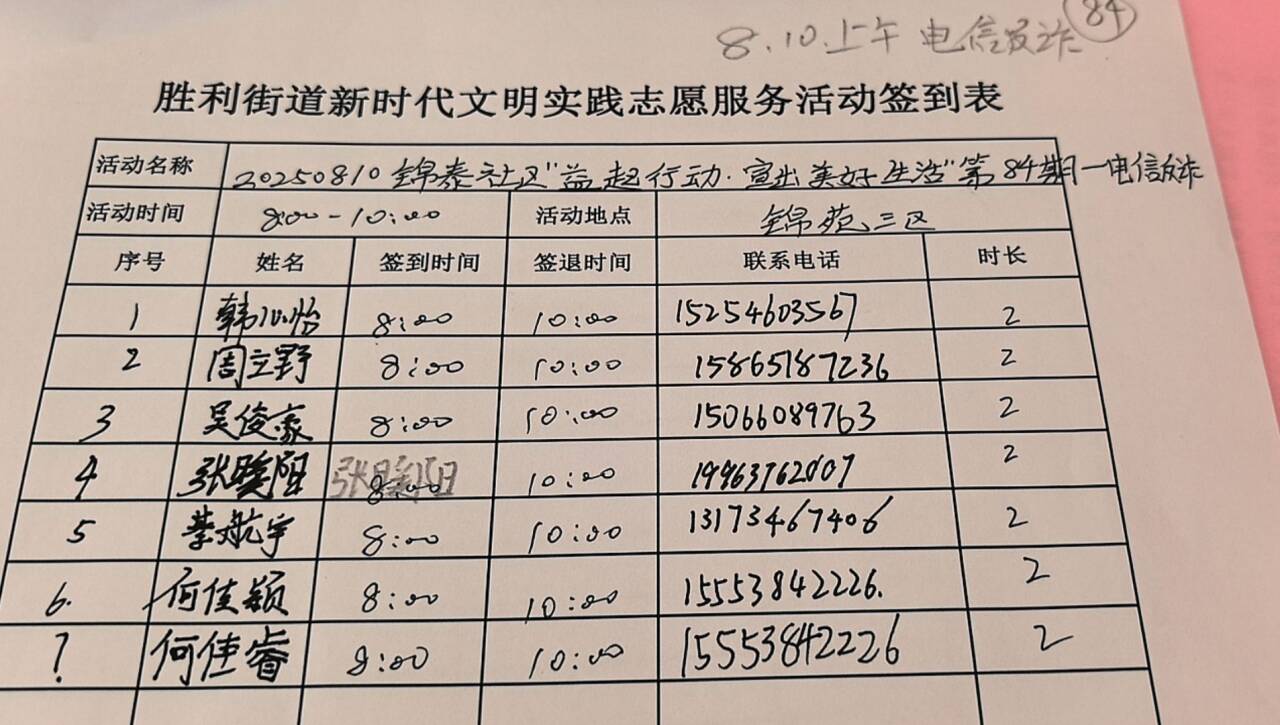 8.10.上午 电信反诈 84
胜利街道新时代文明实践志愿服务活动签到表
活动名称 20250810锦泰社区"益起行动·宣出美好生活"第84期—电信反诈
活动时间 8:00-10:00 活动地点 锦苑三区
序号 姓名 签到时间 签退时间 联系电话 时长
1 韩心怡 8:00 10:00 15254603567 2
2 周立野 8:00 10:00 15865187236 2
3 吴俊豪 8:00 10:00 15066089763 2
4 张暕阳 张暕阳 8:00 10:00 19963762007 2
5 蔡航宇 8:00 10:00 13173467406 2
6. 何佳颖 8:00 10:00 15553842226. 2
7 何佳睿 8:00 10:00 15553842226 2